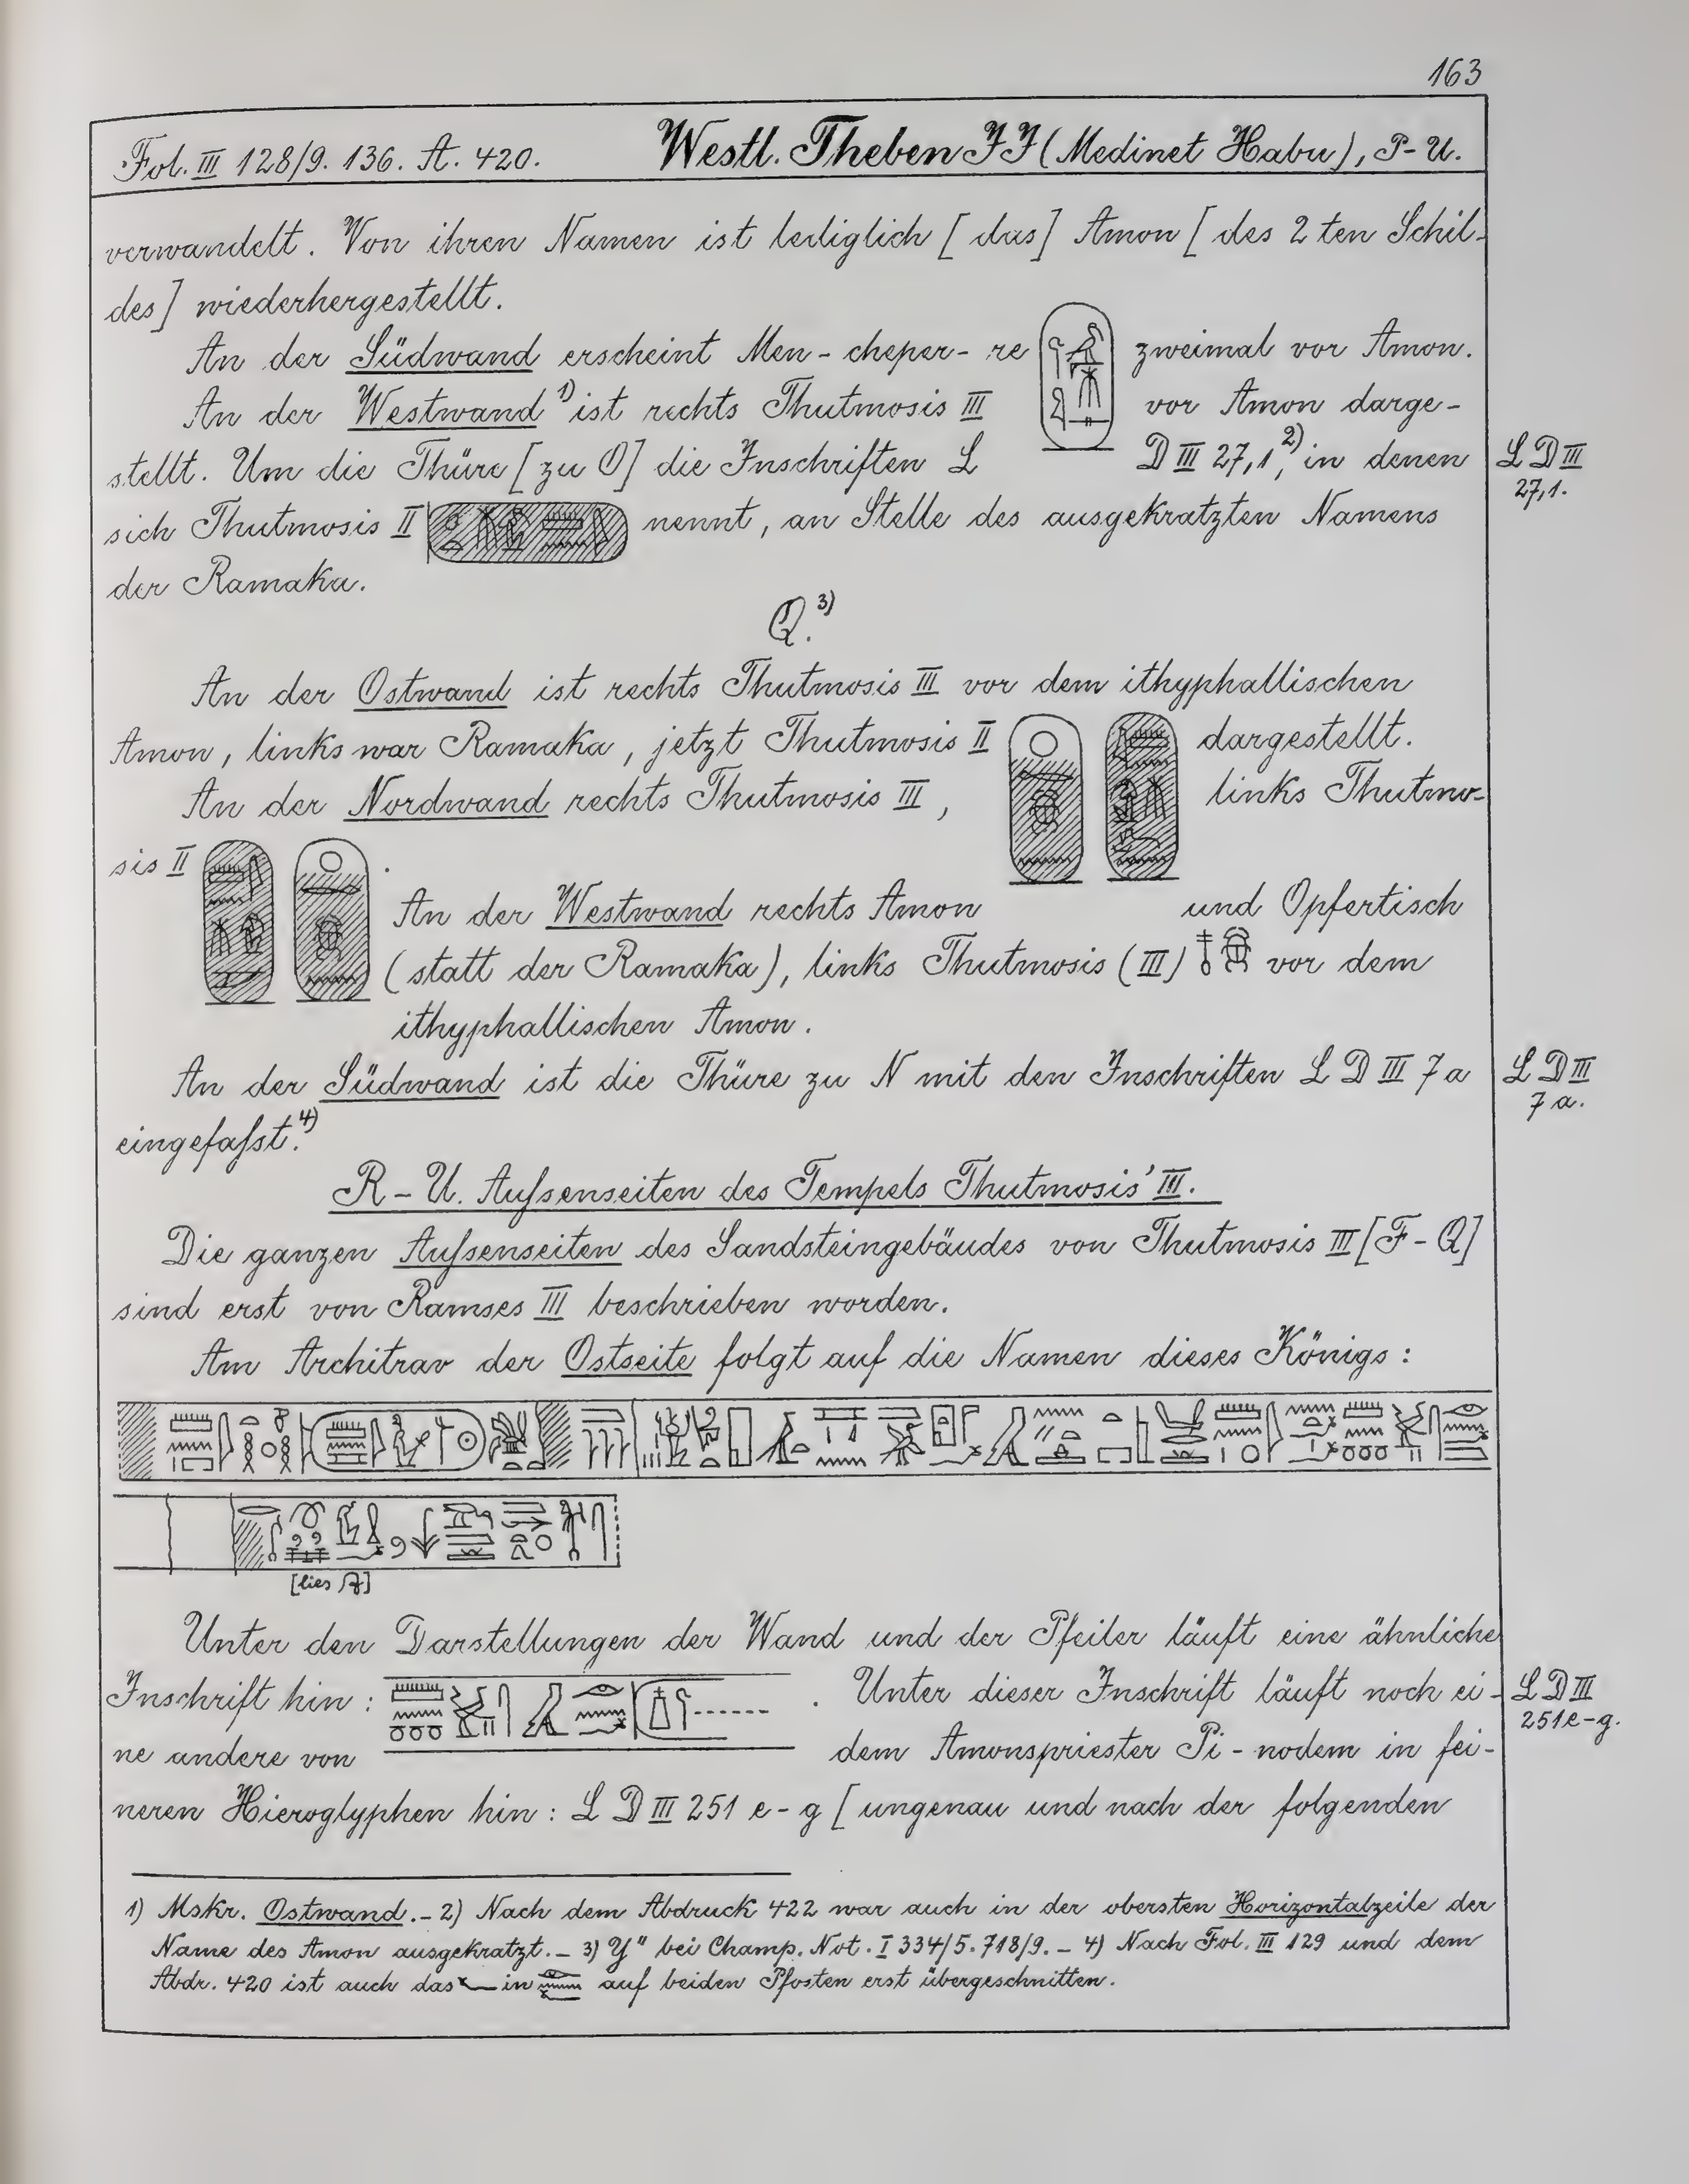 163
Fol. III 128/9. 136. A. 420. Westl. Theben II (Medinet Habu), P-U.
verwandelt. Von ihren Namen ist lediglich [das] Amon [des 2ten Schil-
des] wiederhergestellt.
An der Südwand erscheint Men-cheper-re zweimal vor Amon.
An der Westwand 1) ist rechts Thutmosis III vor Amon darge-
stellt. Um die Thüre [zu O] die Inschriften L D III 27,1, 2) in denen
LD III
27,1.
sich Thutmosis II nennt, an Stelle des ausgekratzten Namens
der Ramaka.
Q. 3)
An der Ostwand ist rechts Thutmosis III vor dem ithyphallischen
Amon, links war Ramaka, jetzt Thutmosis II dargestellt.
An der Nordwand rechts Thutmosis III, links Thutmo-
sis II .
An der Westwand rechts Amon und Opfertisch
(statt der Ramaka), links Thutmosis (III) vor dem
ithyphallischen Amon.
An der Südwand ist die Thüre zu N mit den Inschriften L D III 7a
LD III
7a.
eingefaſst. 4)
R-U. Auſsenseiten des Tempels Thutmosis' III.
Die ganzen Auſsenseiten des Sandsteingebäudes von Thutmosis III [F-Q]
sind erst von Ramses III beschrieben worden.
Am Architrav der Ostseite folgt auf die Namen dieses Königs:
[lies ]
Unter den Darstellungen der Wand und der Pfeiler läuft eine ähnliche
Inschrift hin: . Unter dieser Inschrift läuft noch ei-
LD III
251e-g.
ne andere von dem Amonspriester Pi-nodem in fei-
neren Hieroglyphen hin: L D III 251 e-g [ungenau und nach der folgenden
1) Mskr. Ostwand. – 2) Nach dem Abdruck 422 war auch in der obersten Horizontalzeile der
Name des Amon ausgekratzt. – 3) Y" bei Champ. Not. I 334/5. 718/9. – 4) Nach Fol. III 129 und dem
Abdr. 420 ist auch das in auf beiden Pfosten erst übergeschnitten.